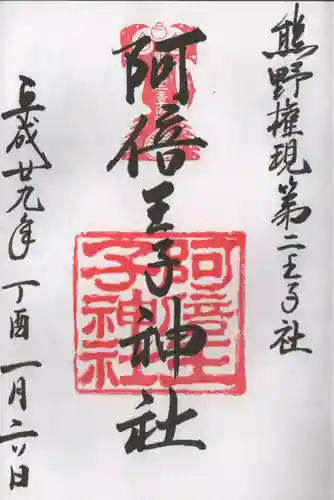 熊野権現第二王子社
阿倍王子神社
平成廿九年丁酉一月二八日
阿倍王
子神社